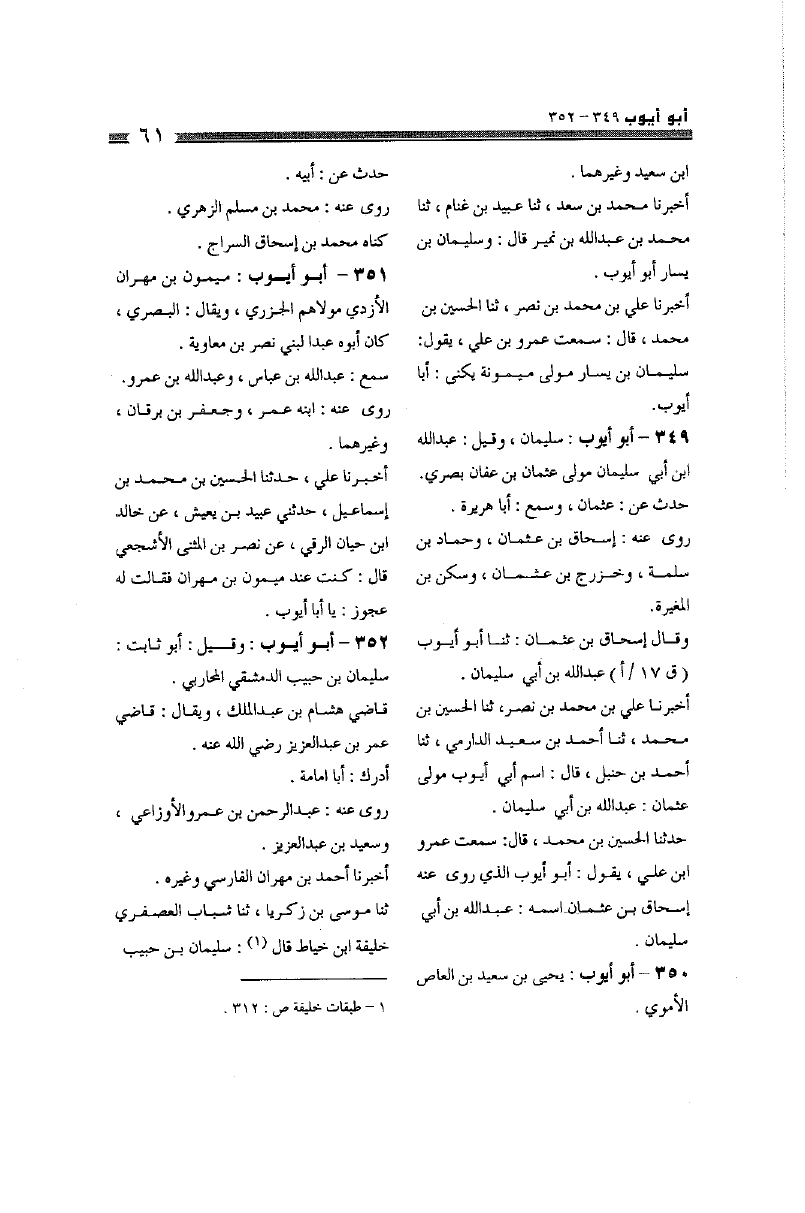 أبو أيوب ٣٤٩ - ٣٥٢
٦١
ابن سعيد وغيرهما .
أخبرنا محمد بن سعد ، ثنا عبيد بن غنام ، ثنا
محمد بن عبدالله بن نمير قال : وسليمان بن
يسار أبو أيوب .
أخبرنا علي بن محمد بن نصر ، ثنا الحسين بن
محمد ، قال : سمعت عمرو بن علي ، يقول:
سليمان بن يسار مولى ميمونة يكنى : أبا
أيوب.
٣٤٩ - أبو أيوب : سليمان ، وقيل : عبدالله
ابن أبي سليمان مولى عثمان بن عفان بصري.
حدث عن : عثمان ، وسمع : أبا هريرة .
روى عنه : إسحاق بن عثمان ، وحماد بن
سلمة ، وخزرج بن عثمان ، وسكن بن
المغيرة.
وقال إسحاق بن عثمان : ثنا أبو أيوب
( ق ١٧ / أ ) عبدالله بن أبي سليمان .
أخبرنا علي بن محمد بن نصر، ثنا الحسين بن
محمد ، ثنا أحمد بن سعيد الدارمي ، ثنا
أحمد بن حنبل ، قال : اسم أبي أيوب مولى
عثمان : عبدالله بن أبي سليمان .
حدثنا الحسين بن محمد ، قال: سمعت عمرو
ابن علي ، يقول : أبو أيوب الذي روى عنه
إسحاق بن عثمان اسمه : عبدالله بن أبي
سليمان .
٣٥٠ - أبو أيوب : يحيى بن سعيد بن العاص
الأموي .
حدث عن : أبيه .
روى عنه : محمد بن مسلم الزهري .
كناه محمد بن إسحاق السراج .
٣٥١ - أبو أيوب : ميمون بن مهران
الأزدي مولاهم الجزري ، ويقال : البصري ،
كان أبوه عبدا لبني نصر بن معاوية .
سمع : عبدالله بن عباس ، وعبدالله بن عمرو.
روى عنه : ابنه عمر ، وجعفر بن برقان ،
وغيرهما .
أخبرنا علي ، حدثنا الحسين بن محمد بن
إسماعيل ، حدثني عبيد بن يعيش ، عن خالد
ابن حيان الرقي ، عن نصر بن المثنى الأشجعي
قال : كنت عند ميمون بن مهران فقالت له
عجوز : يا أبا أيوب .
٣٥٢ - أبو أيوب : وقيل : أبو ثابت :
سليمان بن حبيب الدمشقي المحاربي .
قاضي هشام بن عبدالملك ، ويقال : قاضي
عمر بن عبدالعزيز رضي الله عنه .
أدرك : أبا امامة .
روى عنه : عبدالرحمن بن عمرو الأوزاعي ،
وسعيد بن عبدالعزيز .
أخبرنا أحمد بن مهران الفارسي وغيره .
ثنا موسى بن زكريا ، ثنا شباب العصفري
خليفة ابن خياط قال (١) : سليمان بن حبيب
١ - طبقات خليفة ص : ٣١٢ .